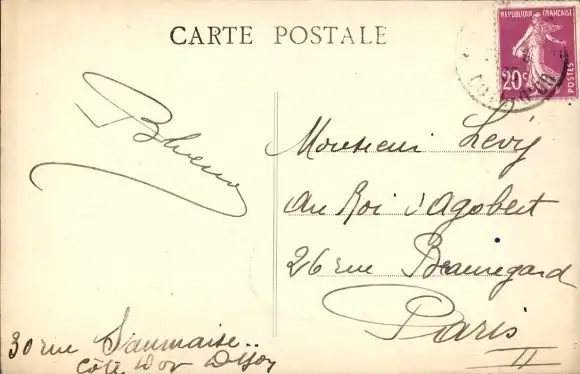 CARTE POSTALE
REPUBLIQUE FRANÇAISE
20c
POSTES
COTE D'OR
Monsieur Levy
au Roi d'Agobert
26 rue Beauregard
Paris
II
30 rue Saumaise..
Côte d'or Dijon